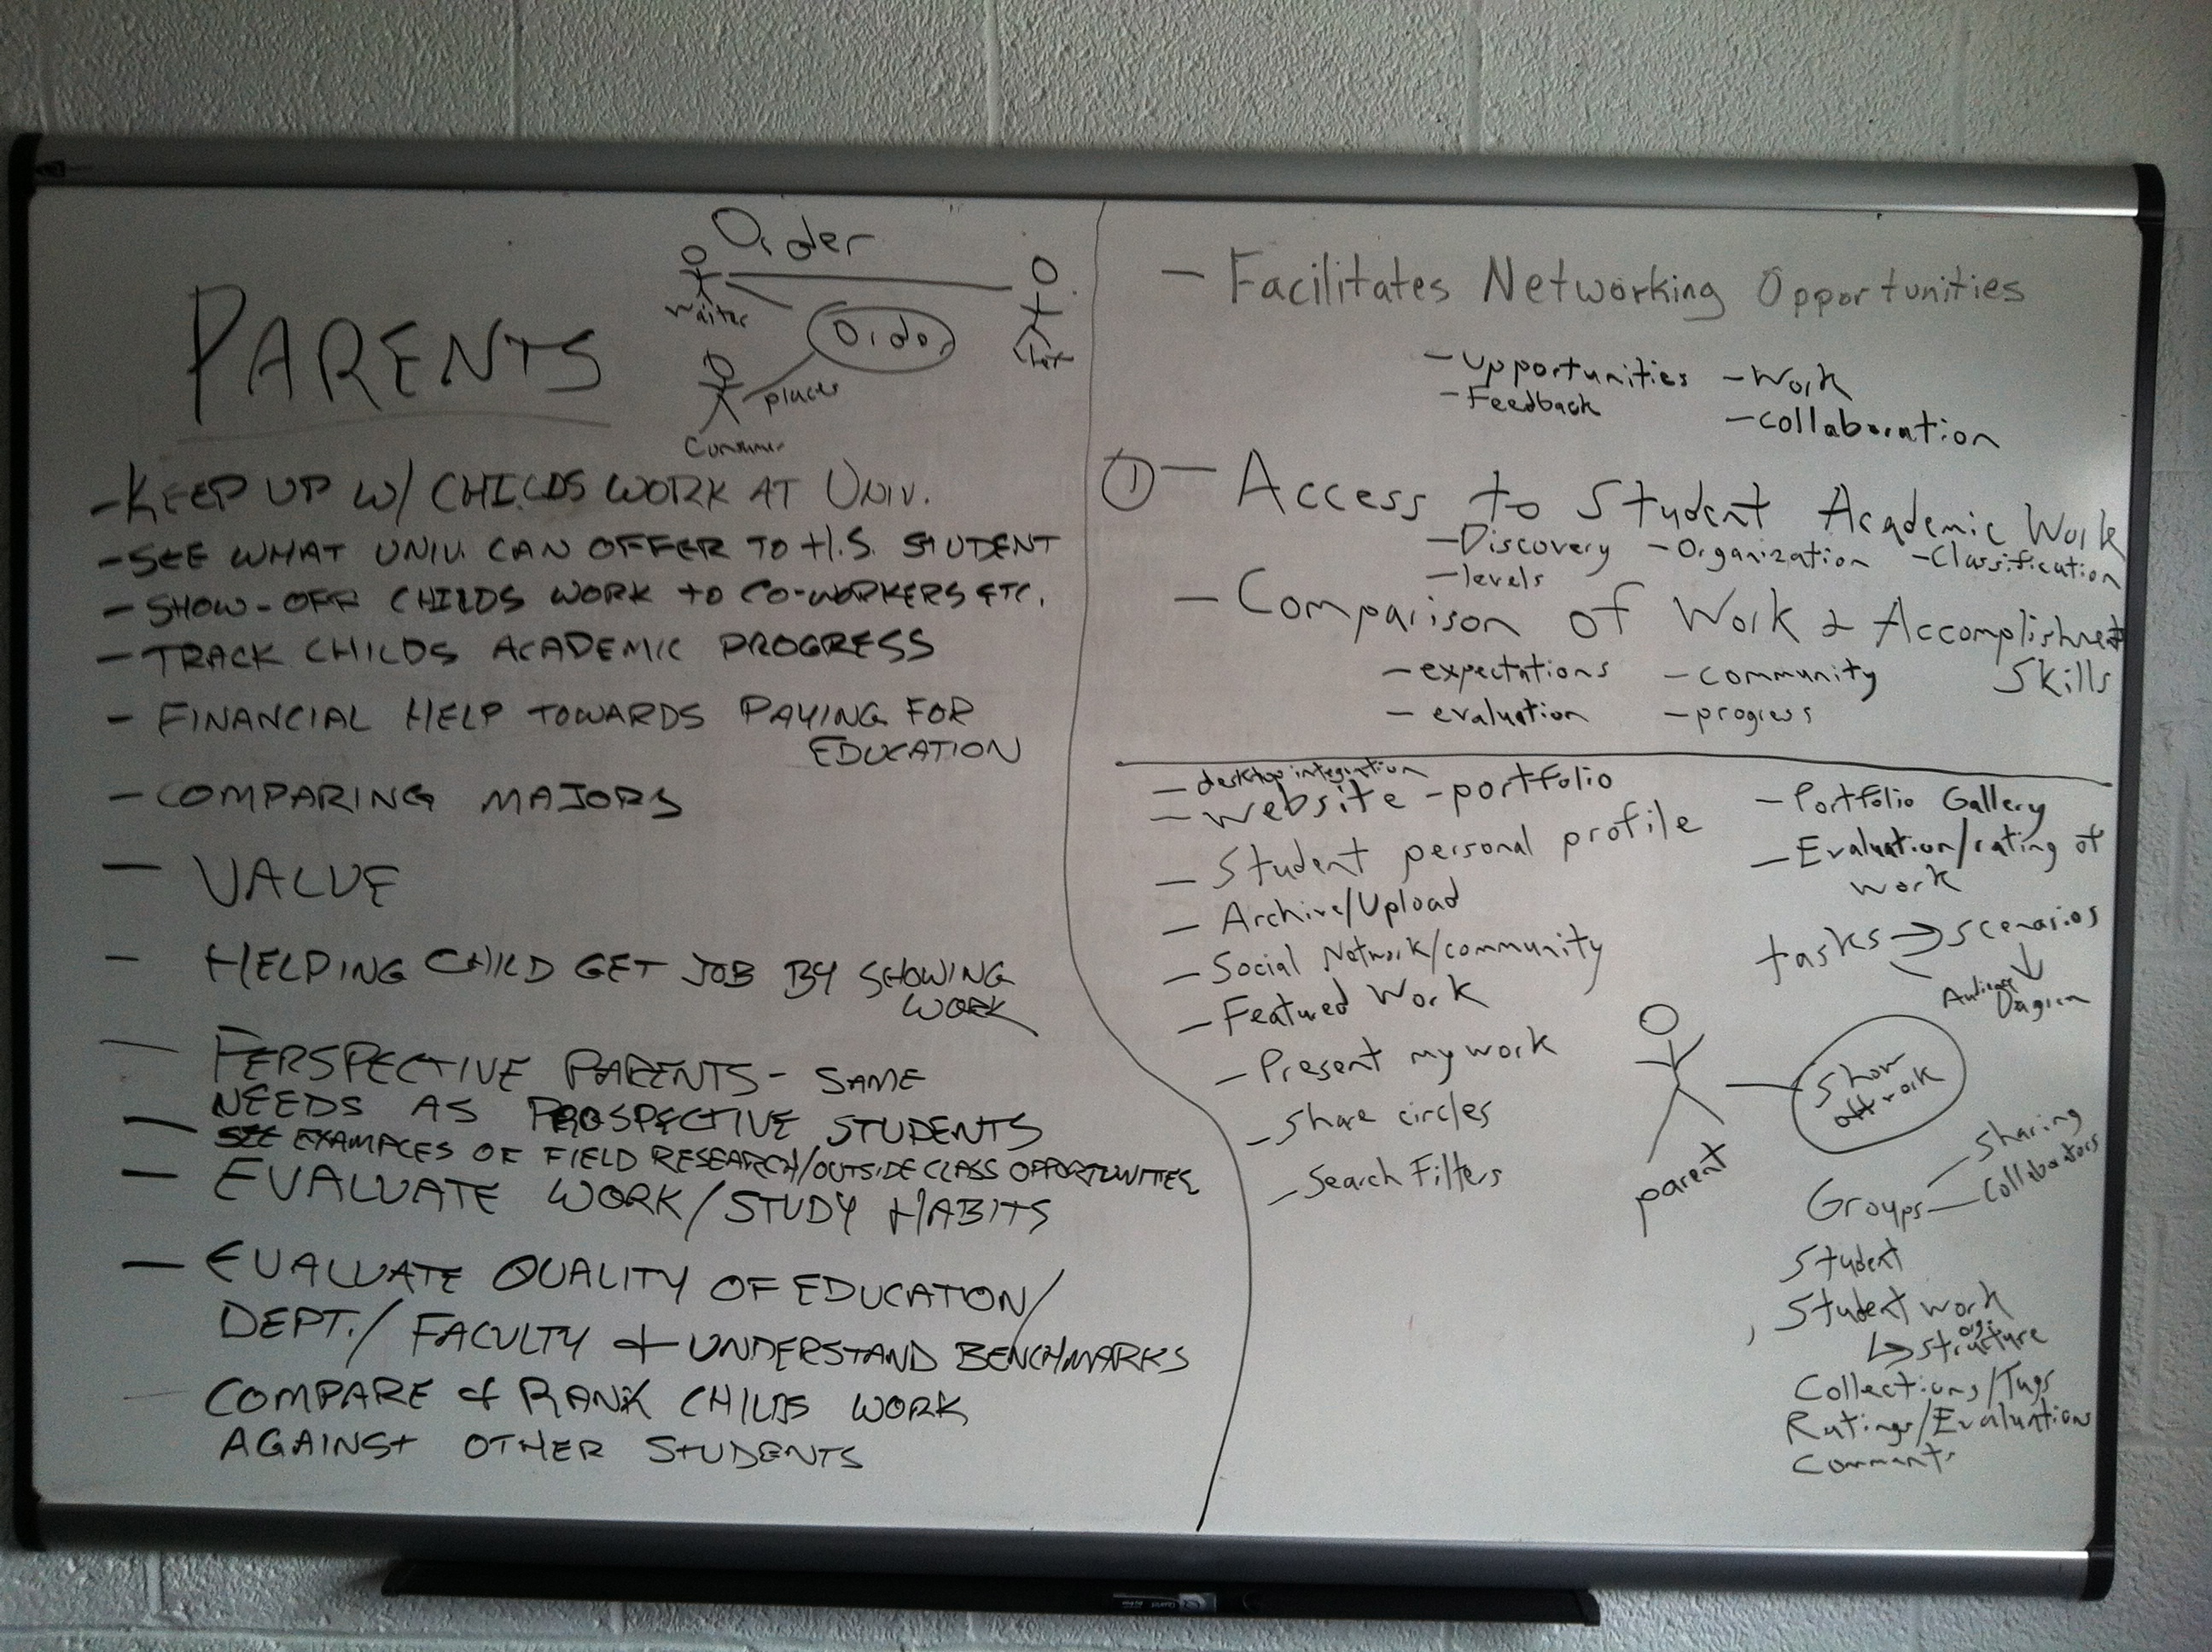 PARENTS
Order
Waiter
Order
places
Consumer
- KEEP UP W/ CHILDS WORK AT UNIV.
- SEE WHAT UNIV. CAN OFFER TO H.S. STUDENT
- SHOW-OFF CHILDS WORK TO CO-WORKERS ETC.
- TRACK CHILDS ACADEMIC PROGRESS
- FINANCIAL HELP TOWARDS PAYING FOR
EDUCATION
- COMPARING MAJORS
- VALUE
- HELPING CHILD GET JOB BY SHOWING
WORK
- PERSPECTIVE PARENTS - SAME
NEEDS AS PROSPECTIVE STUDENTS
- SEE EXAMPLES OF FIELD RESEARCH/OUTSIDE CLASS OPPORTUNITIES
- EVALUATE WORK/STUDY HABITS
- EVALUATE QUALITY OF EDUCATION/
DEPT./FACULTY + UNDERSTAND BENCHMARKS
- COMPARE & RANK CHILDS WORK
AGAINST OTHER STUDENTS
- Facilitates Networking Opportunities
- opportunities - Work
- Feedback - collaboration
① - Access to Student Academic Work
- Discovery - Organization - Classification
- levels
- Comparison of Work & Accomplishment
Skills
- expectations - community
- evaluation - progress
- desktop integration
- website - portfolio
- Student personal profile
- Archive/Upload
- Social Network/community
- Featured Work
- Present my work
- Share circles
- Search Filters
- Portfolio Gallery
- Evaluation/rating of
work
tasks → scenarios
Show
off work
parent
Sharing
Groups Collaborators
Student
Student work
↳ org. structure
Collections/Tags
Ratings/Evaluations
Comments